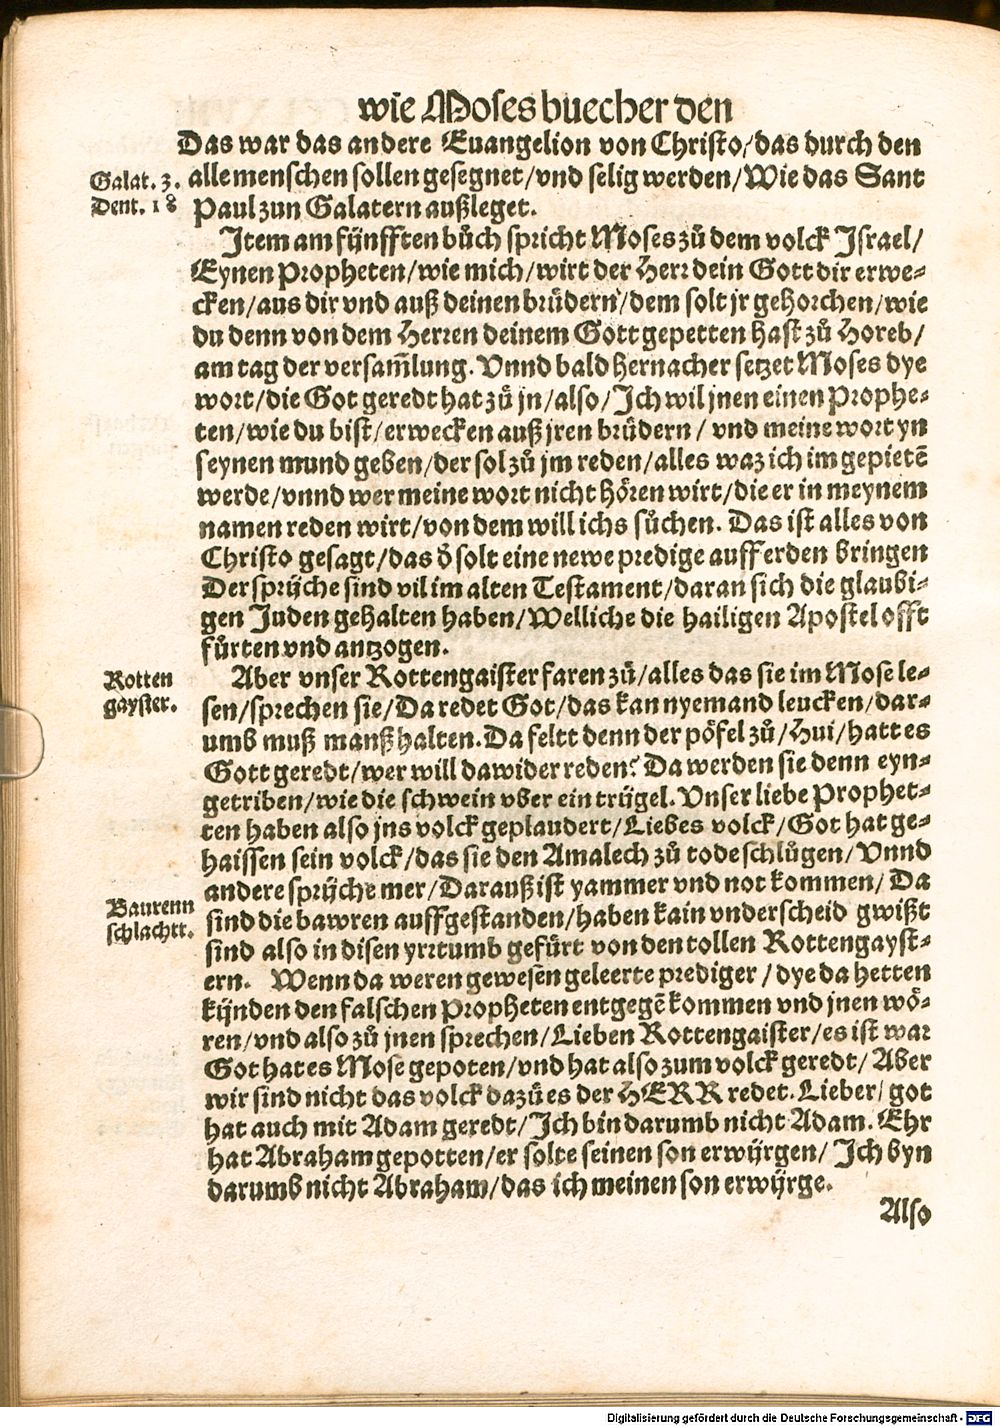 wie Moses buecher den
Das war das andere Euangelion von Christo/das durch den
Galat. 3.
Deut. 18
alle menschen sollen gesegnet/vnd selig werden/Wie das Sant
Paul zun Galatern außleget.
Item am fünfften bůch spricht Moses zů dem volck Israel/
Eynen Propheten/wie mich/wirt der Herr dein Gott dir erwe-
cken/aus dir vnd auß deinen brüdern/dem solt jr gehorchen/wie
du denn von dem Herren deinem Gott gepetten hast zů Horeb/
am tag der versam̃lung. Vnnd bald hernacher setzet Moses dye
wort/die Got geredt hat zů jn/also/Ich wil jnen einen Prophe-
ten/wie du bist/erwecken auß jren brüdern/ vnd meine wort yn
seynen mund geben/der sol zů jm reden/alles waz ich im gepietẽ
werde/vnnd wer meine wort nicht hören wirt/die er in meynem
namen reden wirt/von dem will ichs sůchen. Das ist alles von
Christo gesagt/das ð solt eine newe predige auff erden bringen
Der sprüche sind vil im alten Testament/daran sich die glaubi-
gen Juden gehalten haben/Welliche die hailigen Apostel offt
fürten vnd antzogen.
Rotten
gayster.
Aber vnser Rottengaister faren zů/alles das sie im Mose le-
sen/sprechen sie/Da redet Got/das kan nyemand leucken/dar-
umb muß manß halten. Da feltt denn der pöfel zů/Hui/hatt es
Gott geredt/wer will dawider reden? Da werden sie denn eyn-
getriben/wie die schwein vber ein trügel. Vnser liebe Prophet-
ten haben also jns volck geplaudert/Liebes volck/Got hat ge-
haissen sein volck/das sie den Amalech zů tode schlůgen/Vnnd
andere sprüche mer/Darauß ist yammer vnd not kommen/ Da
Baurenn
schlachtt.
sind die bawren auffgestanden/haben kain vnderscheid gwißt
sind also in disen yrrtumb gefürt von den tollen Rottengayst-
ern. Wenn da weren gewesen geleerte prediger/dye da hetten
künden den falschen Propheten entgegẽ kommen vnd jnen wö-
ren/vnd also zů jnen sprechen/Lieben Rottengaister/es ist war
Got hat es Mose gepoten/vnd hat also zum volck geredt/ Aber
wir sind nicht das volck dazů es der HERR redet. Lieber/ got
hat auch mit Adam geredt/Ich bin darumb nicht Adam. Ehr
hat Abraham gepotten/er solte seinen son erwürgen/ Ich byn
darumb nicht Abraham/das ich meinen son erwürge.
Also
Digitalisierung gefördert durch die Deutsche Forschungsgemeinschaft - DFG